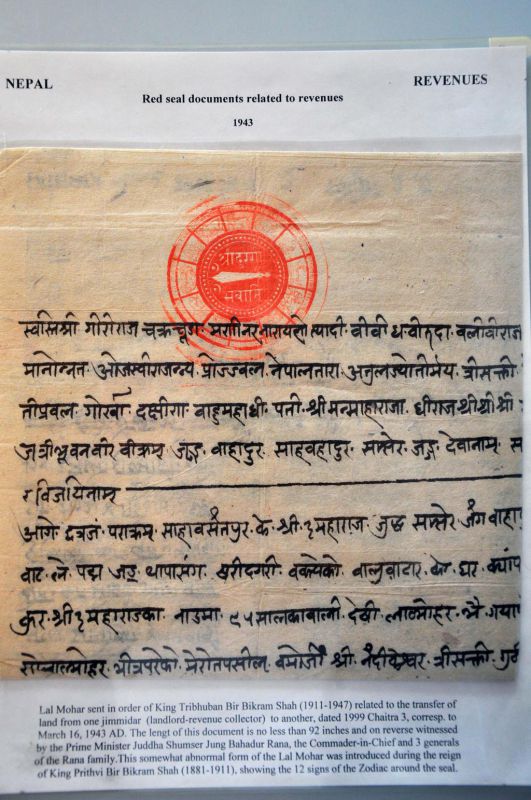 NEPAL
REVENUES
Red seal documents related to revenues
1943
श्रीदुर्गा
भवानि
स्वस्तिश्री गीरीराज चक्रचूडा नरनारायणेत्यादी वीवीध वीरुदा वलीवीराज
मानोन्नत ओजस्वीराजन्य प्रोज्ज्वल नेपालतारा अतुलज्योतीर्मय त्रीसक्ती
तीप्रवल गोर्षा दक्षीण वाहुमहाधी पती श्रीमन्माहाराजा धीराज श्रीश्रीश्री
जत्रीभूवनवीर वीक्रम् जङ्ग वाहादुर साहवहादुर सम्सेर जङ्ग देवानाम्
र विजयिनाम्
आगे पराक्रम् साहावसंतपुर के श्री ३ महाराज जुद्ध सम्सेर जंग वाहा
वाट ले पद्म जङ्ग थापासंग षरीदगरी वक्सेको वालुवाटार घर
कुर श्री ३ महाराजका नाउमा ९५ सालका देषी लालमोहर भै गया
लालमोहर भीत्रपरेको वमोजी श्री नंदीकेश्वर त्रीसक्ती
Lal Mohar sent in order of King Tribhuban Bir Bikram Shah (1911-1947) related to the transfer of
land from one jimmidar (landlord-revenue collector) to another, dated 1999 Chaitra 3, corresp. to
March 16, 1943 AD. The lengt of this document is no less than 92 inches and on reverse witnessed
by the Prime Minister Juddha Shumser Jung Bahadur Rana, the Commader-in-Chief and 3 generals
of the Rana family.This somewhat abnormal form of the Lal Mohar was introduced during the reign
of King Prithvi Bir Bikram Shah (1881-1911), showing the 12 signs of the Zodiac around the seal.